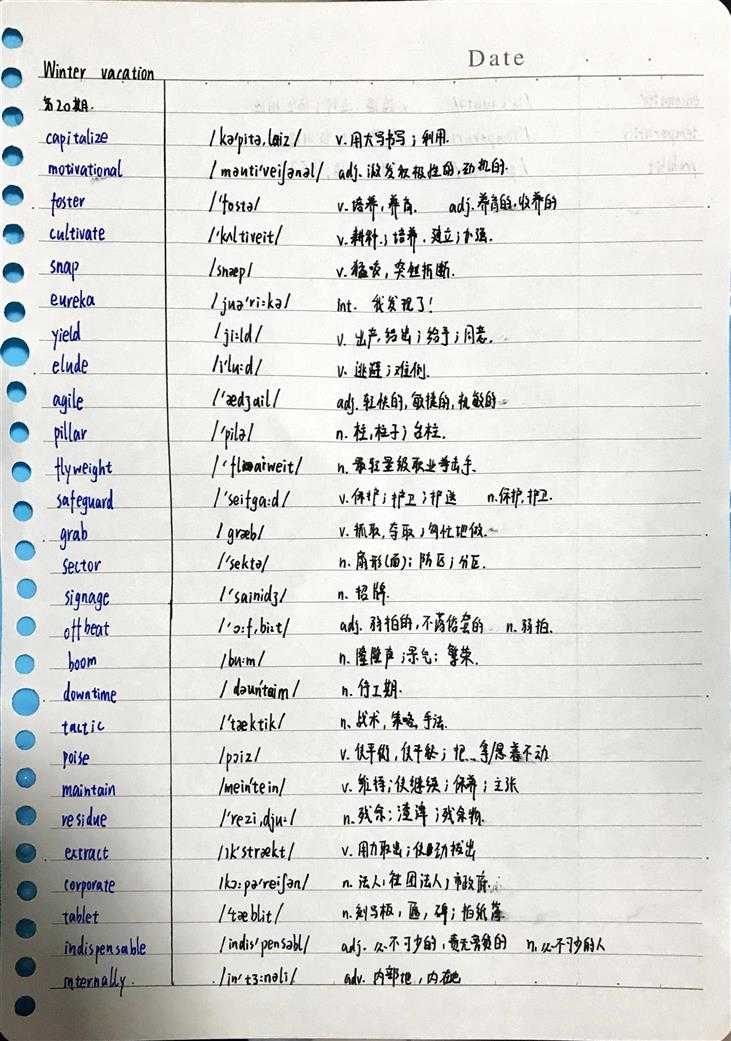 Date
Winter vacation
第20期.
capitalize /kə'pitə,laiz/ v.用大写书写;利用.
motivational /məuti'veiʃənəl/ adj.激发积极性的,动机的.
foster /'fostə/ v.培养,养育. adj.养育的,收养的
cultivate /'kʌltiveit/ v.耕种;培养.建立;加强.
snap /snæp/ v.猛咬,突然折断.
eureka /juə'ri:kə/ int. 我发现了!
yield /ji:ld/ v.出产,给出;给予;同意.
elude /i'lu:d/ v.逃避;难倒.
agile /'ædʒail/ adj.轻快的,敏捷的,机敏的
pillar /'pilə/ n.柱,柱子;台柱.
flyweight /'flaiweit/ n.最轻量级职业拳击手.
safeguard /'seifga:d/ v.保护;护卫;护送 n.保护,护卫.
grab /græb/ v.抓取,夺取;匆忙地做.
sector /'sektə/ n.扇形(面);防区;分区.
signage /'sainidʒ/ n.招牌.
offbeat /'ɔ:f,bi:t/ adj.弱拍的,不落俗套的 n.弱拍.
boom /bu:m/ n.隆隆声;景气;繁荣.
downtime /dəun'taim/ n.停工期.
tactic /'tæktik/ n.战术,策略,手法.
poise /pɔiz/ v.使平衡,使平稳;把…等/悬着不动
maintain /mein'tein/ v.维持;使继续;保养;主张
residue /'rezi,dju:/ n.残余;渣滓;残余物.
extract /ik'strækt/ v.用力取出;使自动拔出
corporate /kɔ:pə'reiʃən/ n.法人,社团法人,市政府.
tablet /'tæblit/ n.刻写板,匾,碑;拍纸簿
indispensable /indis'pensəbl/ adj.必不可少的,责无旁贷的 n.必不可少的人
internally. /in't3:nəli/ adv.内部地,内在地